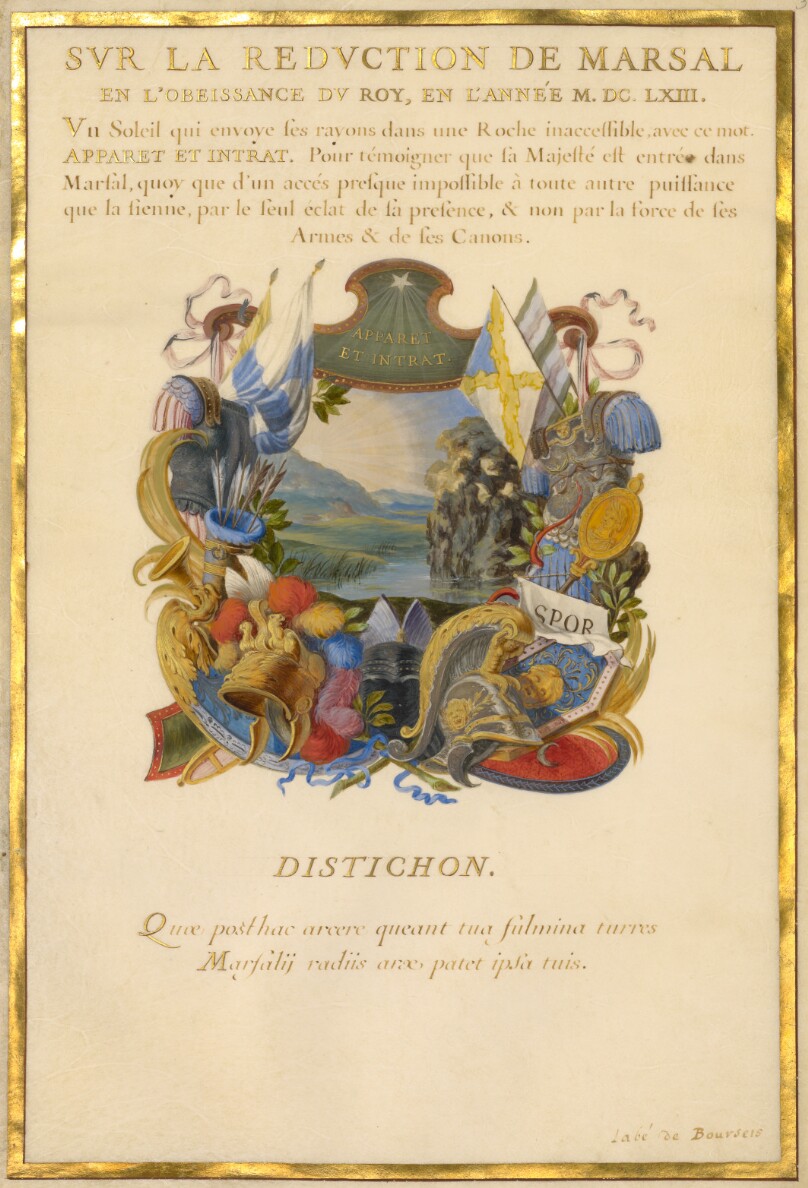 SVR LA REDVCTION DE MARSAL
EN L'OBEISSANCE DV ROY, EN L'ANNÉE M. DC. LXIII.
Vn Soleil qui envoye ſes rayons dans une Roche inacceſſible, avec ce mot.
APPARET ET INTRAT. Pour témoigner que ſa Majeſté eſt entrée dans
Marſal, quoy que d'un accés preſque impoſſible à toute autre puiſſance
que la ſienne, par le ſeul éclat de ſa preſence, & non par la force de ſes
Armes & de ſes Canons.
APPARET
ET INTRAT.
SPQR
DISTICHON.
Quæ poſthac arcere queant tua fulmina turres
Marſalij radiis arx patet ipſa tuis.
labé de Bourseis